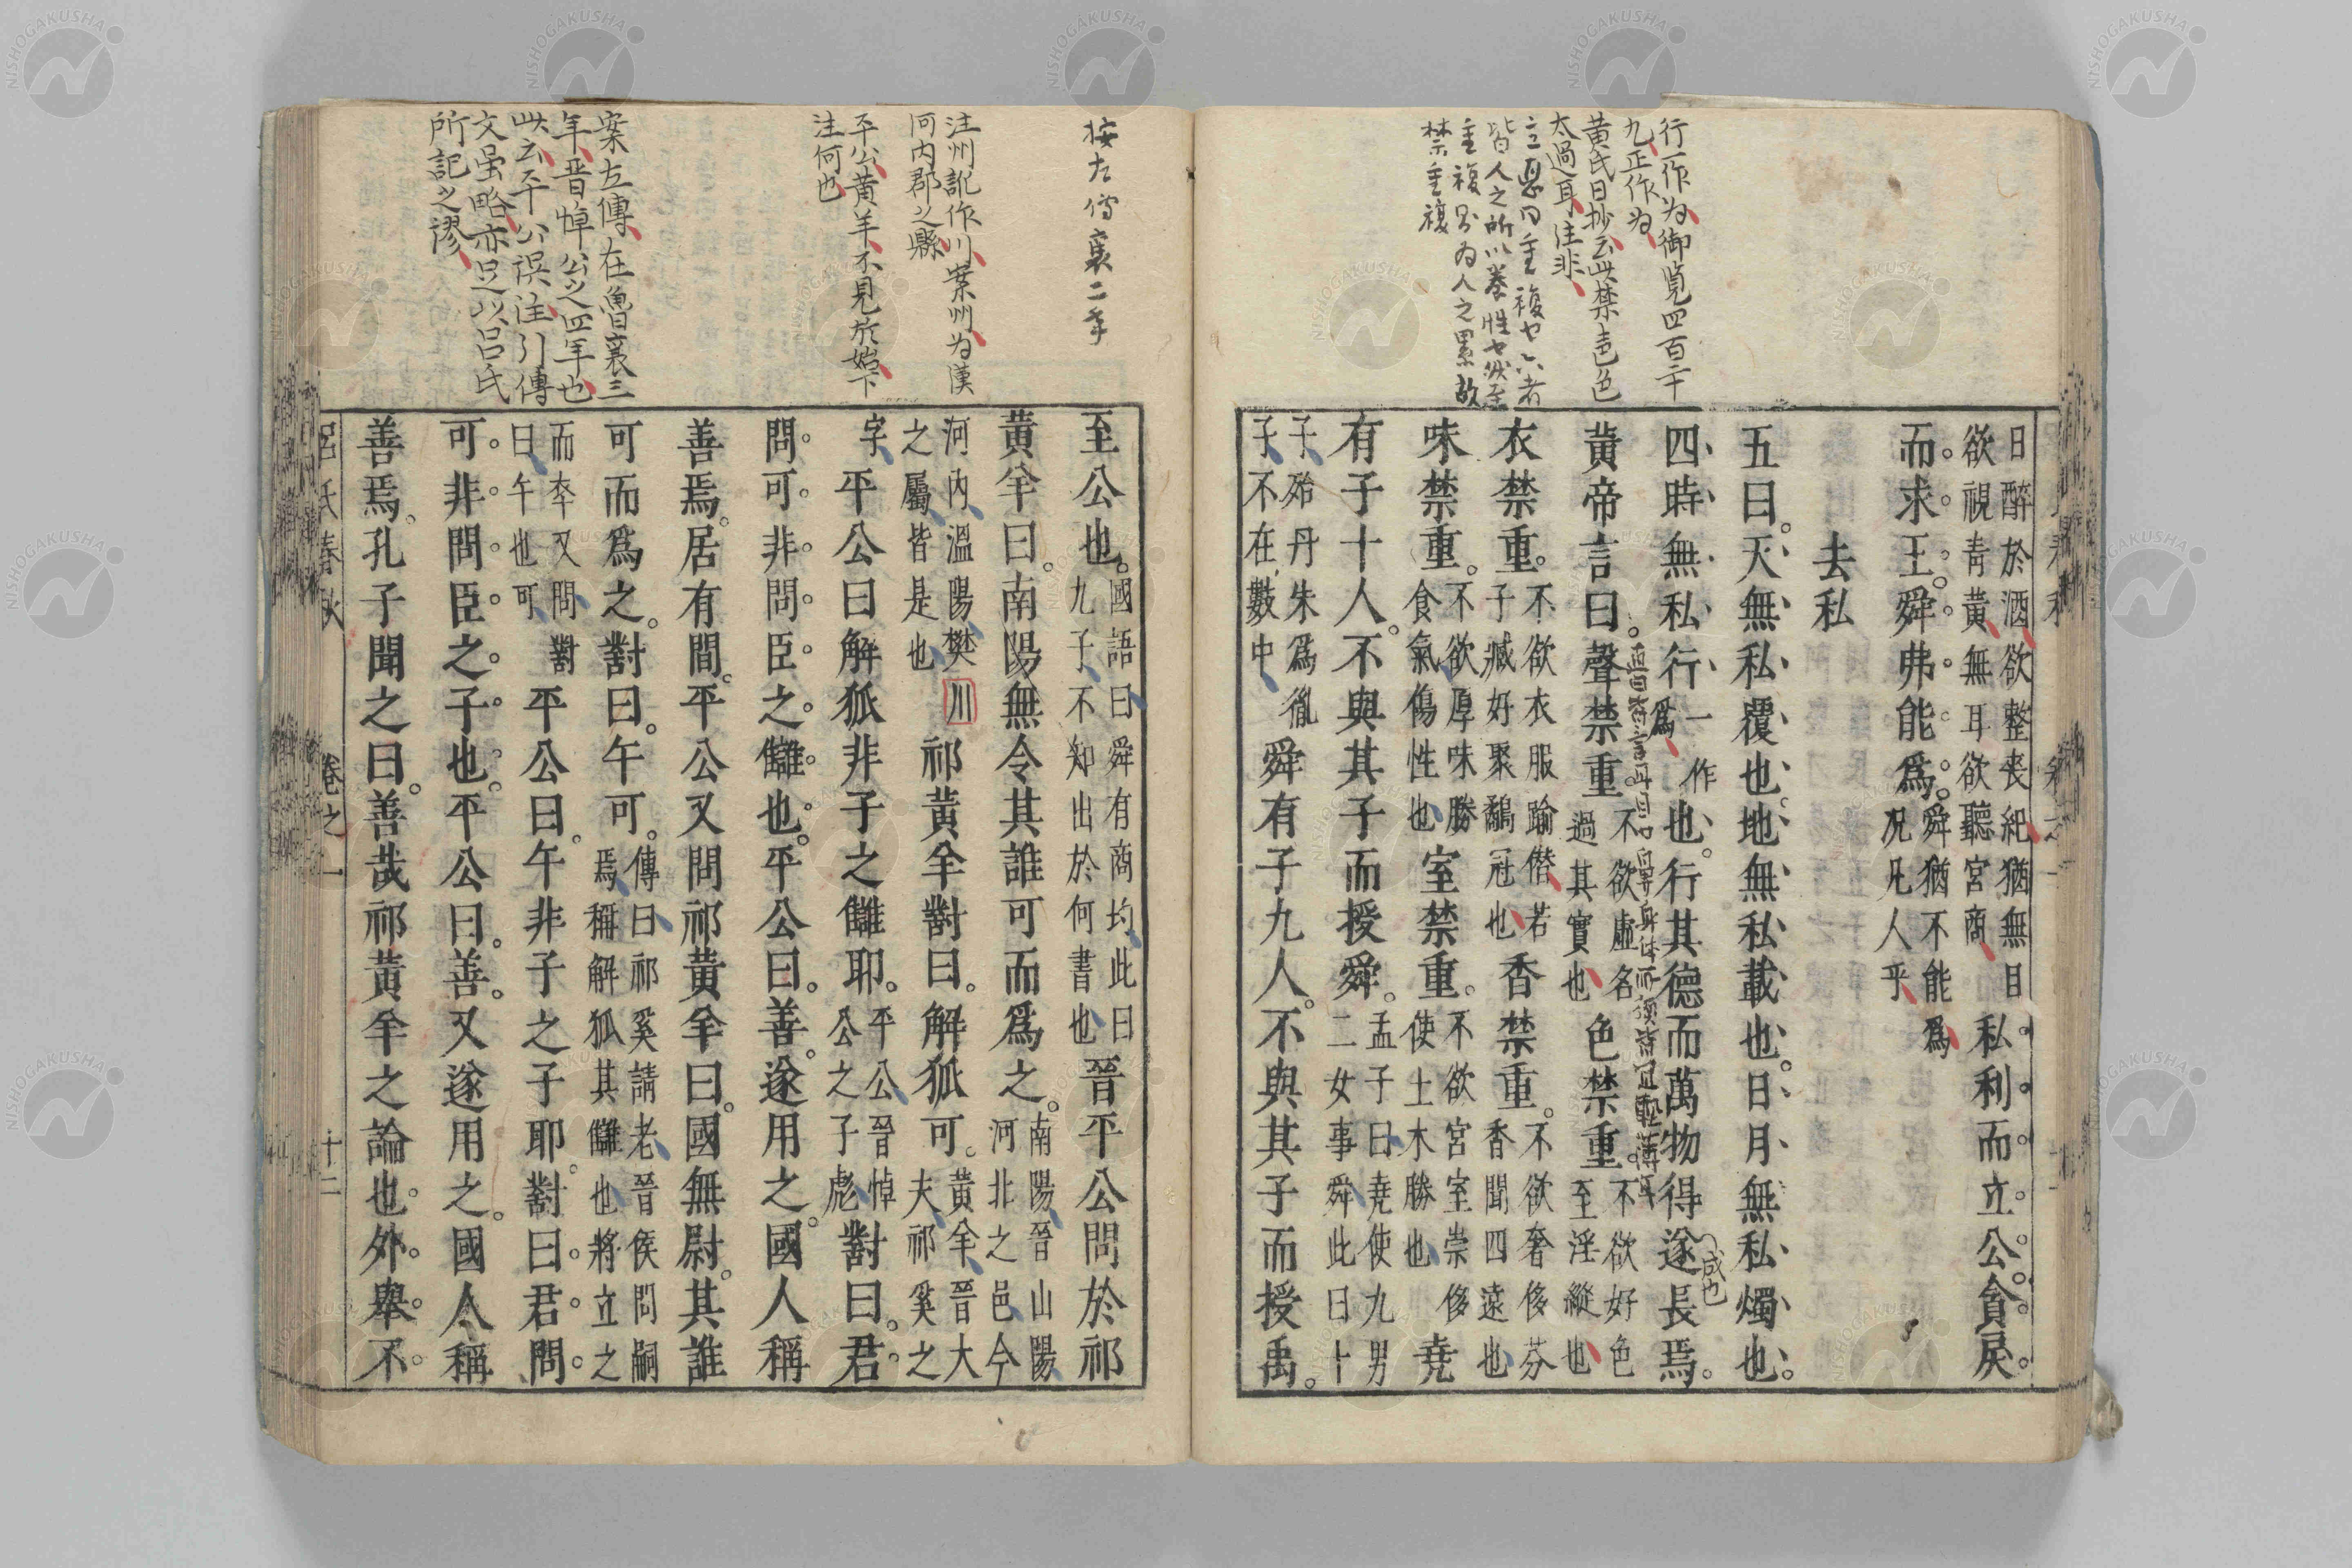 行一作为御覧四百二十
九正作為
黄氏日抄云此禁声色
太過耳注非
皆人之所以養性也然
重複則为人之累故
禁重複
日醉於酒欲整喪紀猶無目
欲視青黃無耳欲聽宮商
私利而立公貪戾
而求王舜弗能爲
舜猶不能爲
况凡人乎
去私
五曰天無私覆也地無私載也日月無私燭也
四時無私行
一作
爲
也行其德而萬物得遂長焉
成也
黃帝言曰聲禁重
不欲虛名
過其實也
色禁重
不欲好色
至淫縱也
衣禁重
不欲衣服踰僭若
子臧好聚鷸冠也
香禁重
不欲奢侈芬
香聞四遠也
味禁重
不欲厚味勝
食氣傷性也
室禁重
不欲宮室崇侈
使土木勝也
堯
有子十人不與其子而授舜
孟子曰堯使九男
二女事舜此曰十
子殆丹朱爲胤
子不在數中
舜有子九人不與其子而授禹
按左傳襄二年
注州訛作川案州为漢
河内郡之縣
平公黄羊不見於始下
注何也
案左傳在魯襄三
年晋悼公之四年也
此云平公誤注引傳
文虽略亦足以呂氏
所記之謬
至公也
國語曰舜有商均此曰
九子不知出於何書也
晉平公問於祁
黃羊曰南陽無令其誰可而爲之
南陽晉山陽
河北之邑今
河內溫陽樊川
之屬皆是也
祁黃羊對曰解狐可
黃羊晉大
夫祁奚之
字
平公曰解狐非子之讎耶
平公晉悼
公之子彪
對曰君
問可非問臣之讎也平公曰善遂用之國人稱
善焉居有間平公又問祁黃羊曰國無尉其誰
可而爲之對曰午可
傳曰祁奚請老晉侯問嗣
焉稱解狐其讎也將立之
而卒又問對
曰午也可
平公曰午非子之子耶對曰君問
可非問臣之子也平公曰善又遂用之國人稱
善焉孔子聞之曰善哉祁黃羊之論也外舉不
呂氏春秋 卷之一 十二